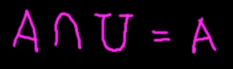 A ∩ U = A